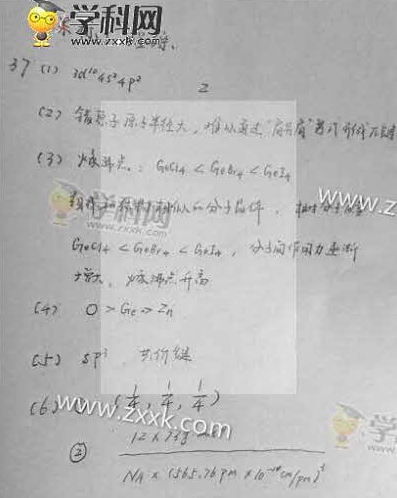 学科网
www.zxxk.com
37 (1) 3d¹⁰4s²4p² 2
(2) 锗原子原子半径大,难以通过"肩并肩"
(3) 熔沸点: GeCl₄ < GeBr₄ < GeI₄
分子晶体,
GeCl₄ < GeBr₄ < GeI₄, 分子间作用力逐渐
增大, 熔沸点升高
(4) O > Ge > Zn
(5) sp³ 共价键
(6) (1/4, 1/4, 1/4)
②
NA × (565.76 pm × 10⁻¹⁰ cm/pm)³
www.zxxk.com